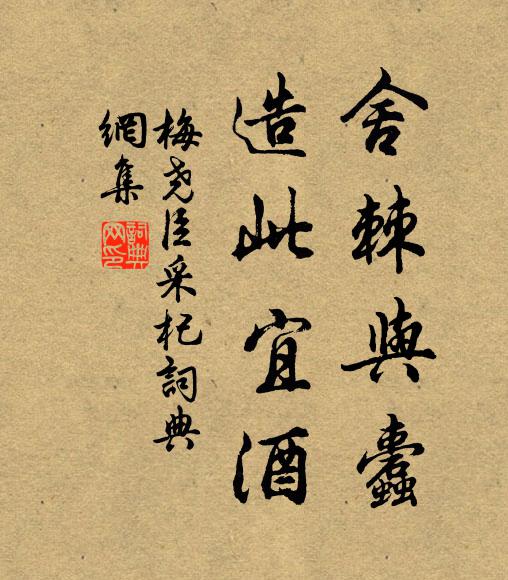 舍棘與蠹
造此宜酒
梅堯臣采杞詞典
網集
詞典網印